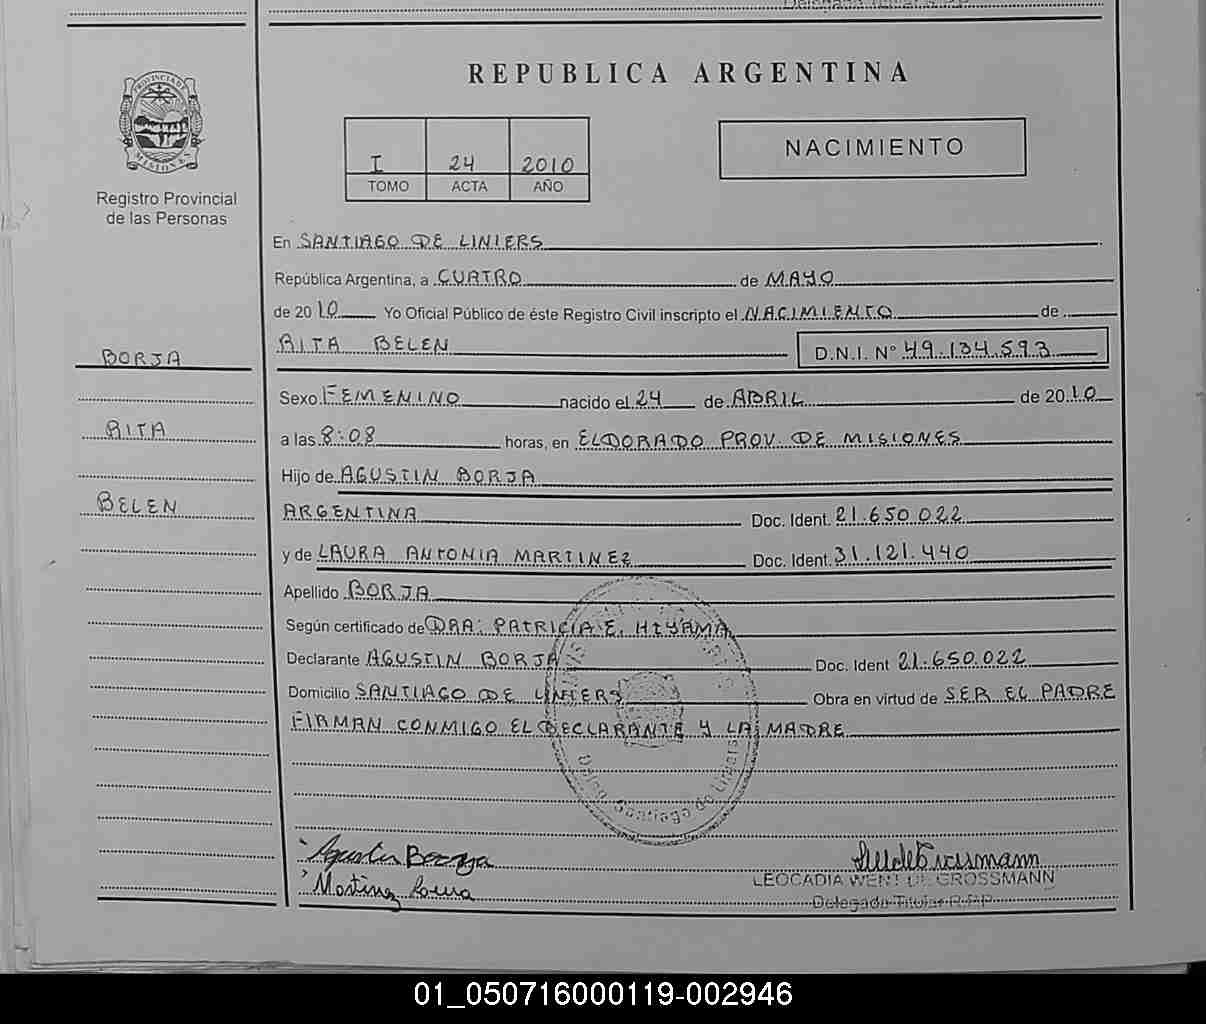 Delegado Titular R.P.P.
REPUBLICA ARGENTINA
PROVINCIA DE MISIONES
Registro Provincial
de las Personas
I 24 2010
TOMO ACTA AÑO
NACIMIENTO
En SANTIAGO DE LINIERS
República Argentina, a CUATRO de MAYO
de 2010 Yo Oficial Público de éste Registro Civil inscripto el NACIMIENTO de
RITA BELEN D.N.I. N° 49.134.593
BORJA
RITA
BELEN
Sexo FEMENINO nacido el 24 de ABRIL de 2010
a las 8:08 horas, en ELDORADO PROV. DE MISIONES
Hijo de AGUSTIN BORJA
ARGENTINA Doc. Ident. 21.650.022
y de LAURA ANTONIA MARTINEZ Doc. Ident. 31.121.440
Apellido BORJA
Según certificado de DRA: PATRICIA E. HIYAMA
Declarante AGUSTIN BORJA Doc. Ident 21.650.022
Domicilio SANTIAGO DE LINIERS Obra en virtud de SER EL PADRE
FIRMAN CONMIGO EL DECLARANTE Y LA MADRE
Deleg. Santiago de Liniers
Agustin Borja
Martinez Laura
LEOCADIA WENT DE GROSSMANN
Delegado Titular R.P.P.
01_050716000119-002946